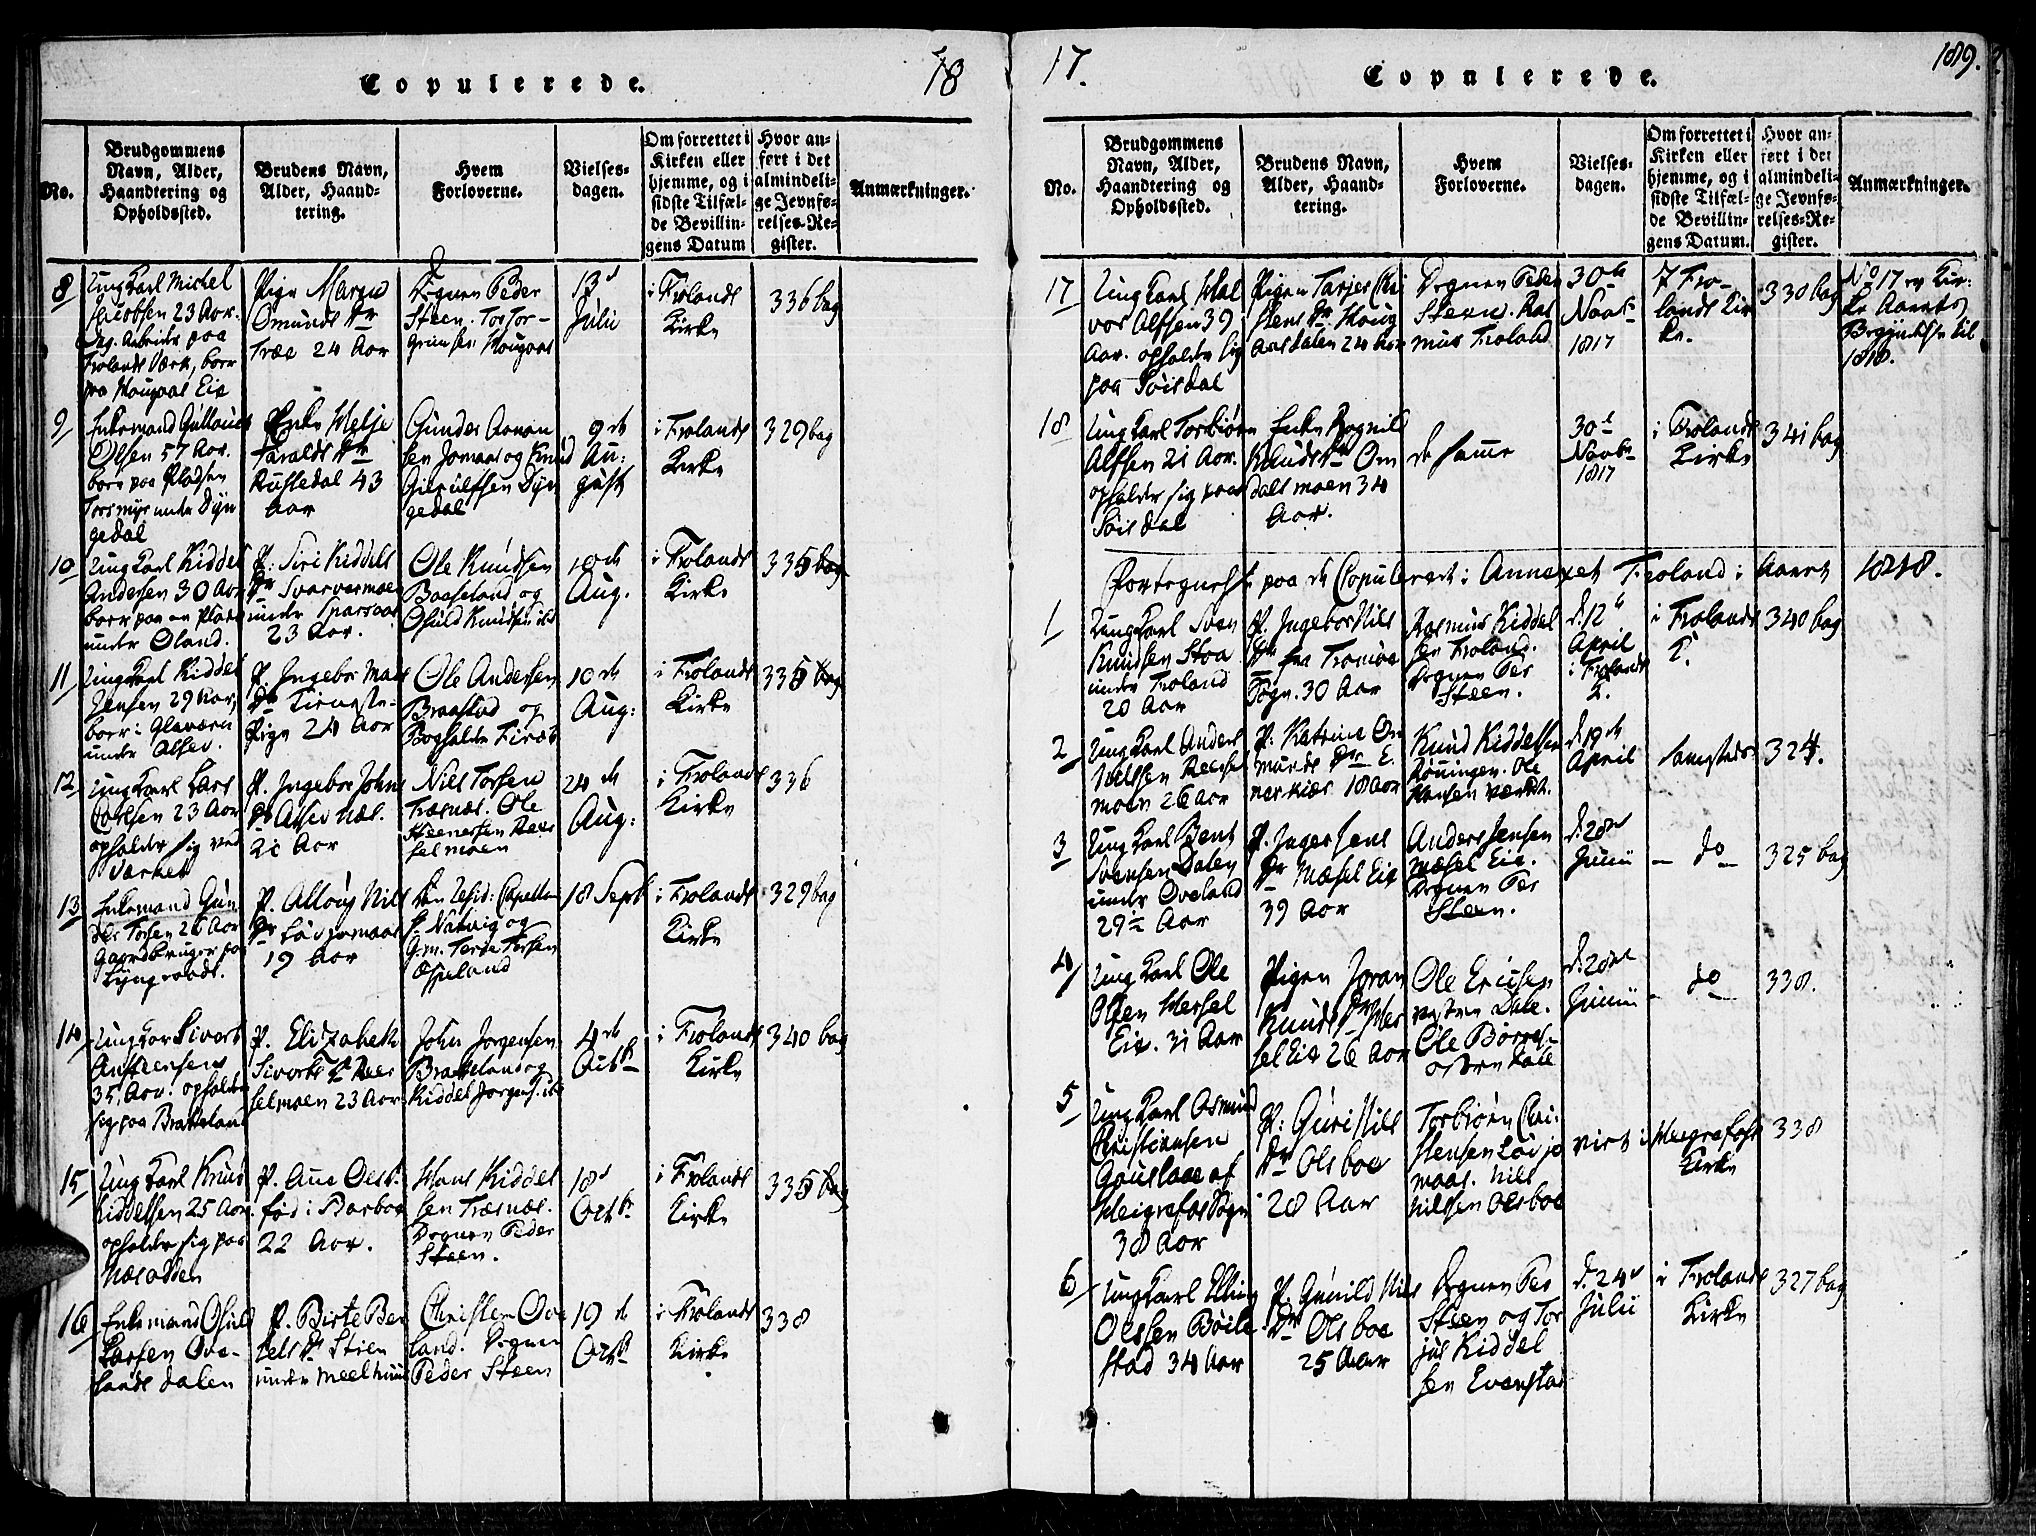 Copulerede. 18
No.
Brudgommens Navn, Alder, Haandtering og Opholdssted.
Brudens Navn, Alder, Haandtering.
Hvem Forloverne.
Vielsesdagen.
Om forrettet i Kirken eller hjemme, og i sidste Tilfælde Bevillingens Datum
Hvor anført i det almindelige Jevnførelses-Register.
Anmærkninger.
8
Ung Karl Michel
Jacobsen 23 Aar.
Dag. Arbeider paa
Frolands Værk, boer
paa Hougaas Eie
Pige Maren
Omunds Dr
Træe 24 Aar
Degnen Peder
Steen. Tor Tor-
grimsen Hougaas
13d
Julii
i Frolands
Kirke
336 bag
9
Enkemand
Olsen 57 Aar.
boer paa Pladsen
Torsmyr under Dyn
gedal
Enke
Taralds Dr
Rusledal 43
Aar
Gunder Aanon
sen Jomaas og Knud
Dyn
gedal
9de
Au:
gust
i Frolands
Kirke
329 bag
10
Ung Karl Kiddel
Andersen 30 Aar
boer paa en Plads
under Øland.
P. Siri Kiddels
Dr Svarvermoen
under
23 Aar.
Ole Knudsen
Baaseland og
Osuld Knudsen ibd
10de
Aug.
i Frolands
Kirke
335 bag
11
Ung Karl Kiddel
Jensen 29 Aar,
boer i Glaveren
under Alsev.
P. Ingebor Mads
Dr
Pige 24 Aar
Ole Andersen
Braastad og
Bogholder
10de
Aug:
i Frolands
Kirke
335 bag
12
Ung Karl Lars
Carlsen 23 Aar
opholder sig ved
Værket
P. Ingebor Johns
Dr
21 Aar
Niels Torsen
Træsnæs. Ole
Steenersen Reer
selmoen
24de
Aug:
i Frolands
Kirke
336
13
Enkemand Gun
der Torsen 26 Aar
Gaardbruger paa
Lyngraade.
P. Niels
Dr Løvjomaas
19 Aar
Den resid: Capellan
Hr. Natvig og
G.m. Torsen
Espeland
18 Sept
i Frolands
Kirke
329 bag
14
Ung Kar Sivort
Austeensen
35. Aar. opholder
sig paa Bratteland
P. Elizabeth
Sivorts Dr Reer
selmoen 23 Aar
John Jorgensen
Brattelandog
Kiddel Jorgens. ibd
4de
Octbr
i Frolands
Kirke
340 bag
15
Ung Karl Knud
Kiddelsen 25 Aar
opholder sig paa
Næsodden
P. Ane Oels
fød i Barboe
22 Aar.
Hans Kiddel
sen Træsnæs.
Degnen Peder
Steen.
18d
Octbr
i Frolands
Kirke
335 bag
16
Enkemand Osuld
Larsen Ove-
lands dalen
P. Birte Ber
tels Dr Stien
under Meelhuus
Christen Ove
land. Degnen
Peder Steen
19de
Octbr
i Frolands
Kirke
338
17. Copulerede. 189.
No.
Brudgommens Navn, Alder, Haandtering og Opholdssted.
Brudens Navn, Alder, Haandtering.
Hvem Forloverne.
Vielsesdagen.
Om forrettet i Kirken eller hjemme, og i sidste Tilfælde Bevillingens Datum.
Hvor anført i det almindelige Jevnførelses-Register.
Anmærkninger.
17
Ung Karl Hal
vor Alfsen 39
Aar. opholder sig
paa Söisdal
Pigen Tarjer Chri
stens Dr Houg
aasdalen 24 Aar
Degnen Peder
Steen. Ras
mus Froland
30te
Novbr
1817
i Fro-
lands Kir
ke.
330 bag
No 17 er Kir-
ke Aarets
Begyndelse til
1818.
18
Ung Karl Torbiørn
Alfsen 21 Aar.
opholder sig paa
Söisdal
Enke Rognil
Knuds Dr Om
dalsmoen 34
Aar.
de samme
30te
Novbr
1817
i Frolands
Kirke
341 bag
Fortegnelse paa de Copulerede i Annexet Froland i Aaret 1818.
1
Ung Karl Sven
Knudsen Stoa
under Froland
20 Aar
P. Ingebor Nils
Dr fra Tromöe
Sogn. 30 Aar
Rasmus Kiddel
sen Froland.
Degnen Per
Steen.
d. 12te
April
i Frolands
K.
i Frolands
K.
340 bag
2
Ung Karl Anders
Nielsen Reersel
moen 26 Aar
P. Katrine Om
munds Dr E.
nerkiær 18 Aar
Knud Kiddelsen
Rönningen. Ole
Hansen Værket.
d. 19de
April
samsteds
324.
3
Ung Karl Bent
Svensen Dalen
under Oveland
29½ Aar
P. Inger Jens
Dr Mæsel Eie
39 Aar
Anders Jensen
Mæsel Eie.
Degnen Per
Steen.
d. 28de
Junii
do
325 bag
4
Ung Karl Ole
Olsen Messel
Eie. 31 Aar
Pigen Joran
Knuds Dr Mes
sel Eie 26 Aar
Ole Ericksen
vestre Dale.
Ole Börres-
østre Dale
d. 28de
Junii
do
338.
5
Ung Karl Osmund
Christiansen
Gauslaae af
Heigrefos Sogn
38 Aar
P: Guri Nils
Dr Olsboe
28 Aar
Torbiörn Chri-
stensen Lövjo
maas. Nils
Nilsen Olsboe
viet i
Heigrefoss
Kirke
338
6
Ung Karl Elling
Olsen Böile-
stad 34 Aar
P. Gunild Nils
Dr Olsboe
25 Aar
Degnen Per
Steen og Tor
jus Kiddel
sen Evenstad
d. 24de
Julii
i Frolands
Kirke
327 bag